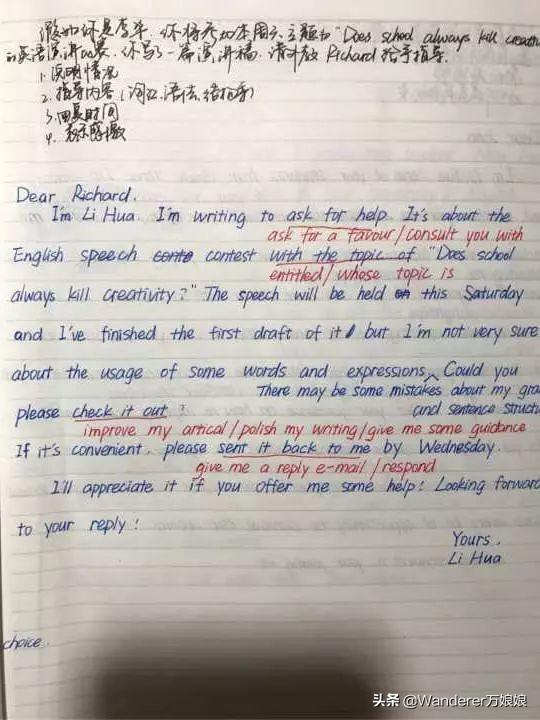 假如你是李华,你将参加本周六主题为"Does school always kill creativ
的英语演讲比赛,你写了一篇演讲稿,请外教Richard给予指导.
1. 说明情况
2. 指导内容(词汇.语法.结构等)
3. 回复时间
4. 表示感激
Dear Richard.
I'm Li Hua. I'm writing to ask for help. It's about the
ask for a favour/consult you with
English speech conte contest with the topic of "Does school
entitled/whose topic is
always kill creativity?" The speech will be held on this Saturday
and I've finished the first draft of it but I'm not very sure
about the usage of some words and expressions, Could you
There may be some mistakes about my gra
please check it out? and sentence struct
improve my artical/polish my writing/give me some guidance
If it's convenient, please sent it back to me by Wednesday.
give me a reply e-mail/respond
I'll appreciate it if you offer me some help! Looking forward
to your reply!
Yours,
Li Hua
choice.
头条 @Wanderer万娘娘